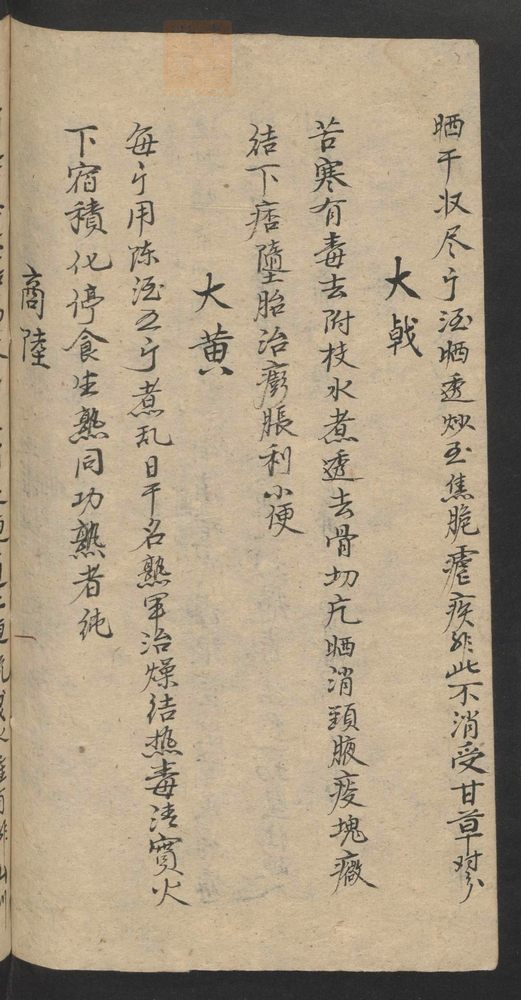 晒干収尽亇酒晒透炒至焦脆瘧疾非此不消受甘草
大戟
苦寒有毒去附枝水煮透去骨切片晒消頸腋痰塊癥
結下痞墮胎治膨脹利小便
大黄
每亇用陈酒五亇煮乱日干名熟军治燥結热毒清實火
下宿積化停食生熟同功熟者純
商陸